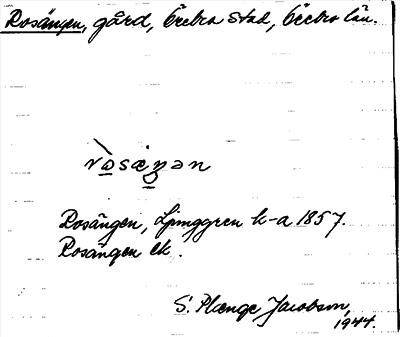 Rosängen, gård, Örebro stad, Örebro län.
ròsæŋən
Rosängen, Ljunggren k-a 1857.
Rosängen ek.
S. Plænge Jacobson,
1944.